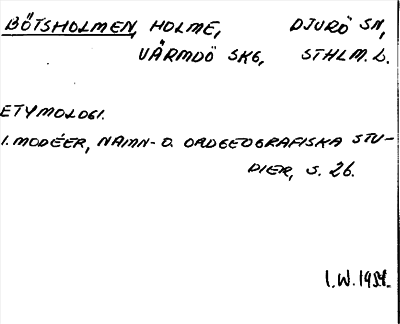 BÖTSHOLMEN, HOLME, DJURÖ SN,
VÄRMDÖ SKG, STHLM. L.
ETYMOLOGI.
I. MODÉER, NAMN- O. ORDGEOGRAFISKA STU-
DIER, S. 26.
I.W. 1954.